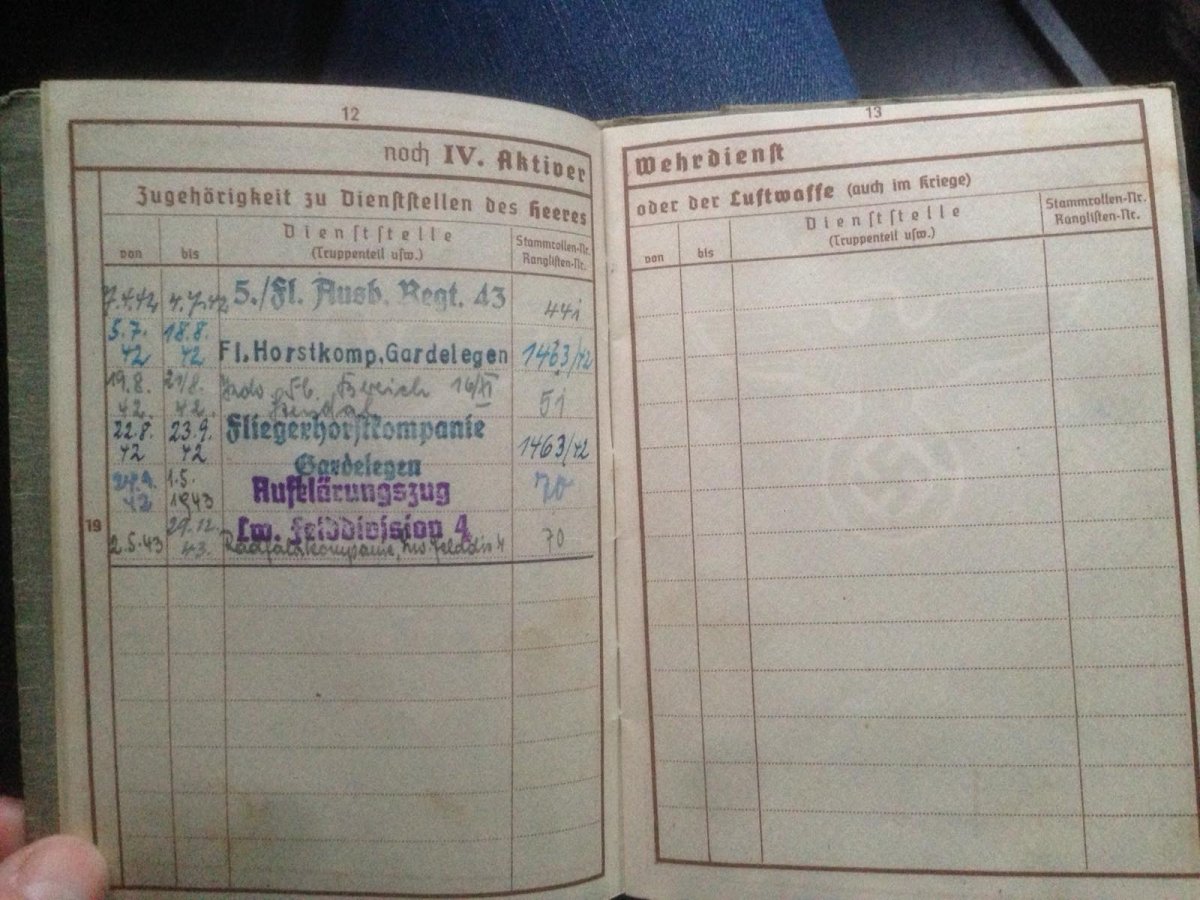 12
noch IV. Aktiver
Zugehörigkeit zu Dienststellen des Heeres
von
bis
Dienststelle
(Truppenteil usw.)
Stammrollen-Nr.
Ranglisten-Nr.
7.4.42 4.7.42 5./Fl. Ausb. Regt. 43
5.7. 18.8.
42 42 Fl.Horstkomp.Gardelegen 1463/42
19.8. 21/8. Bereich
42. 42. 51
22.8. 23.9. Fliegerhorstkompanie
42 42 1463/42
Gardelegen
1.5. Aufklärungszug 70
42 1943
19
Lw. Felddivision 4
2.5.43 43. 70
13
Wehrdienst
oder der Luftwaffe (auch im Kriege)
von
bis
Dienststelle
(Truppenteil usw.)
Stammrollen-Nr.
Ranglisten-Nr.